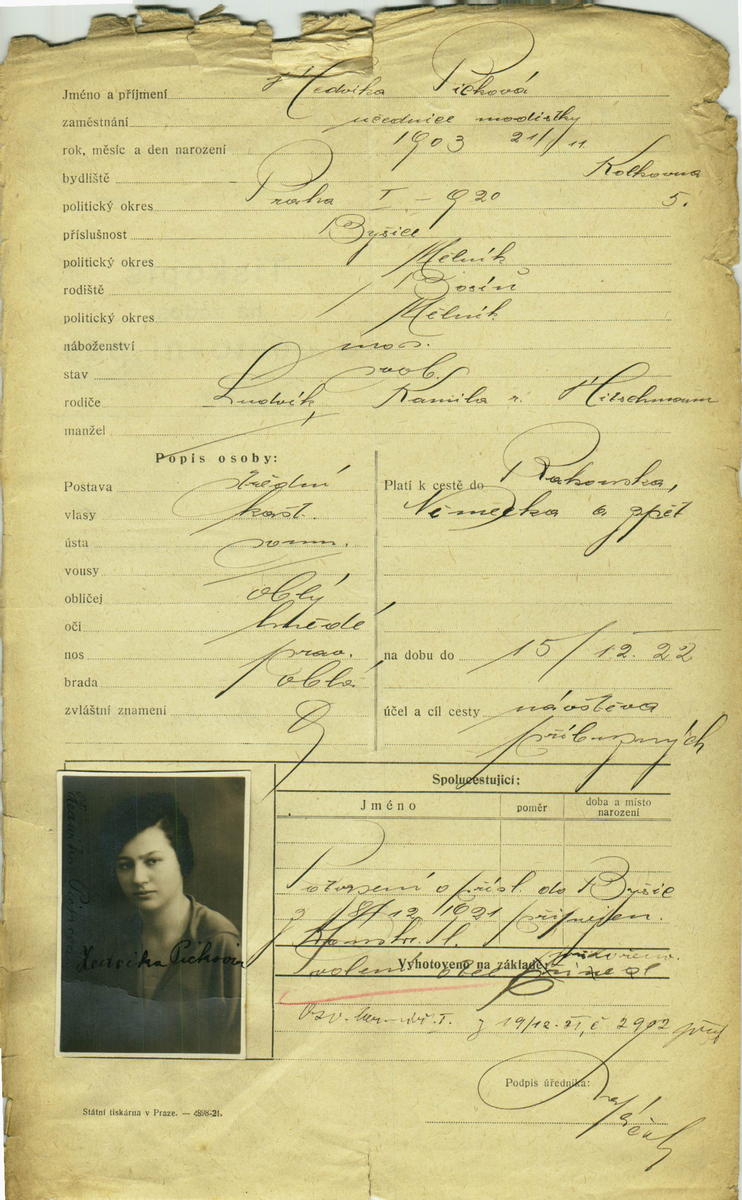 Jméno a příjmení Hedvika Picková
zaměstnání učednice modistky
rok, měsíc a den narození 1903 21/11
bydliště Kolkovna
politický okres Praha I – 920 5.
příslušnost Byšice
politický okres Mělník
rodiště Bosíň
politický okres Mělník
náboženství mos.
stav svob.
rodiče Ludvík, Kamila r. Hitschmann
manžel
Popis osoby:
Postava střední
vlasy kašt.
ústa soum.
vousy
obličej oblý
oči hnědé
nos prav.
brada oblá
zvláštní znamení
Platí k cestě do Rakouska,
Německa a zpět
na dobu do 15/12. 22
účel a cíl cesty návštěva
příbuzných
Spolucestující:
Jméno poměr doba a místo narození
Potvrzení o přísl. do Byšic
z 8/12 1921 připojen.
Vyhotoveno na základě:
z 19/12 21, č 2902
Hedvika Picková
Podpis úředníka:
Státní tiskárna v Praze. — 4898-21.